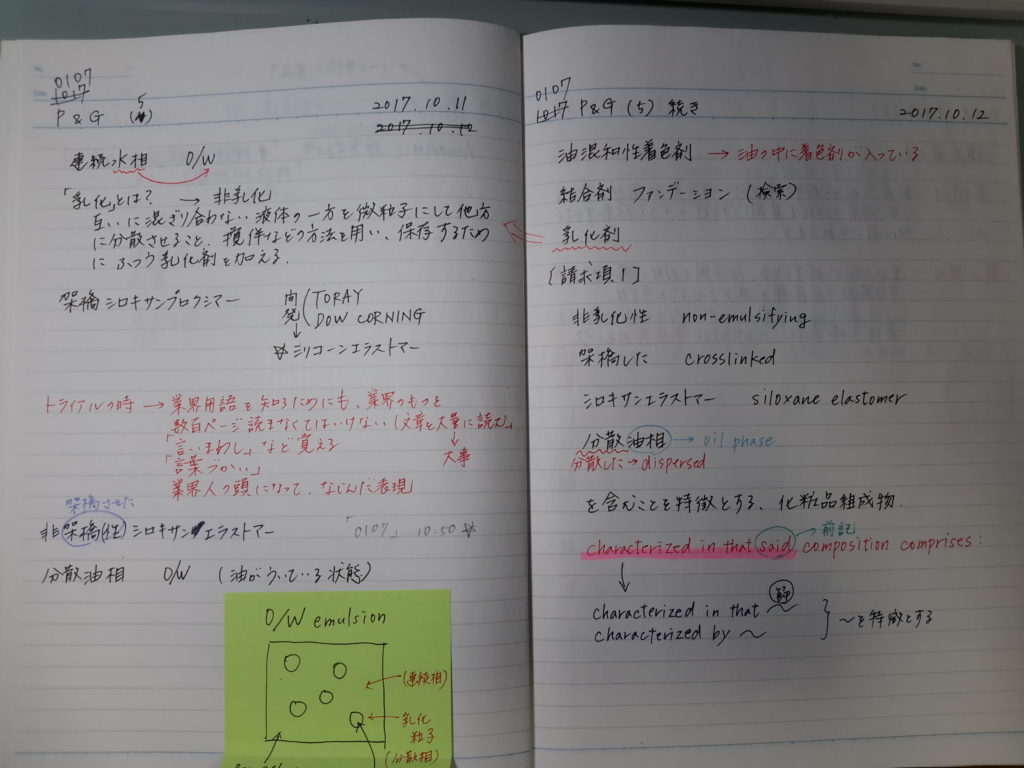 0107
1017
P & G (5)
2017.10.11
2017.10.10
連続水相 O/W
「乳化」とは? → 非乳化
互いに混ざり合わない液体の一方を微粒子にして他方
に分散させること。攪伴などの方法を用い、保存するため
に ふつう乳化剤を加える.
架橋シロキサン
TORAY
DOW CORNING
↓
シリコーンエラストマー
トライアルの時 → 業界用語を知るためにも、業界のもっと
数百ページ読まなくてはいけない (文章を大量に読む)
「言いまわし」など覚える
↓
大事
「言葉づかい」
業界人の頭になって、なじんだ表現
架橋させた
非架橋(性)シロキサンエラストマー
「0107」 10:50
分散油相 O/W (油がういている状態)
O/W emulsion
← (連続相)
← 乳化
粒子
(分散相)
0107
1017
P & G (5) 続き
2017.10.12
油混和性着色剤 → 油の中に着色剤が入っている
結合剤 ファンデーション (検索)
乳化剤
[請求項1]
非乳化性 non-emulsifying
架橋した crosslinked
シロキサンエラストマー siloxane elastomer
分散油相 → oil phase
分散した → dispersed
を含むことを特徴とする、化粧品組成物.
→ 前記
characterized in that said composition comprises:
↓
characterized in that
characterized by 〜
} 〜を特徴とする